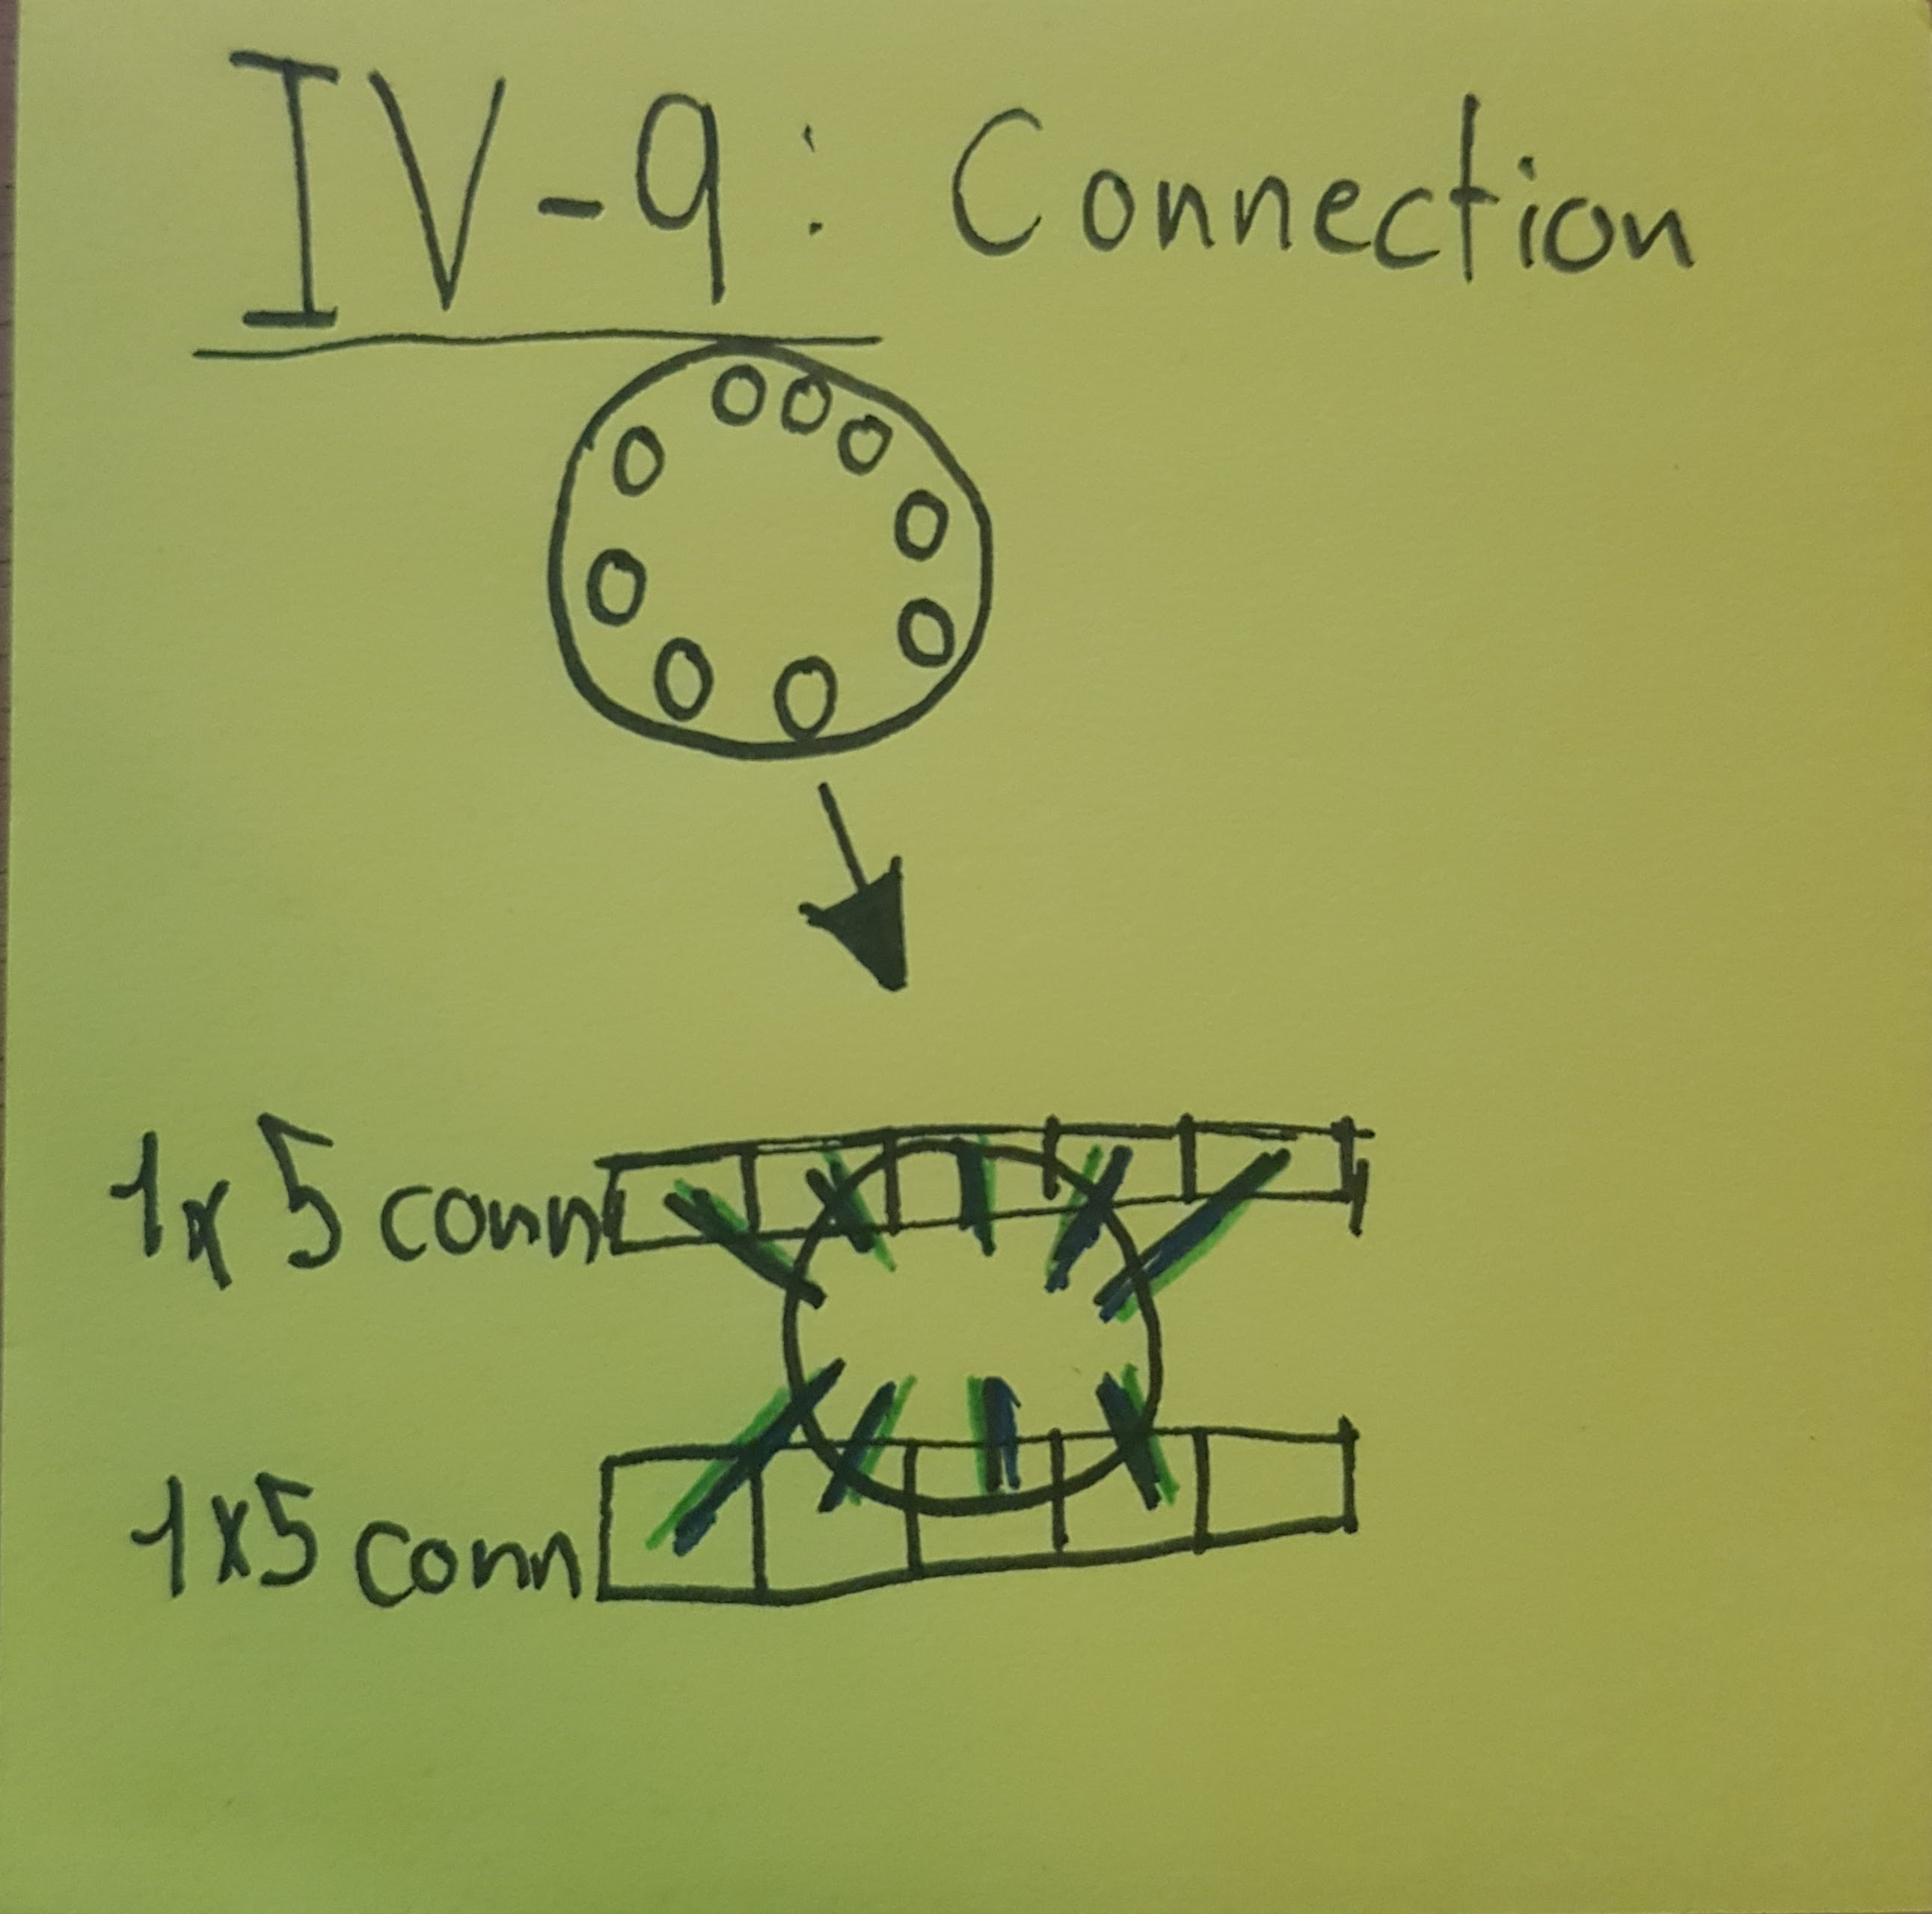 IV-9: Connection
1x5 conn
1x5 conn